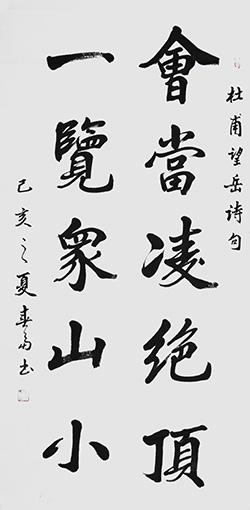 杜甫望岳诗句
會當凌绝頂
一覽衆山小
己亥之夏春为书